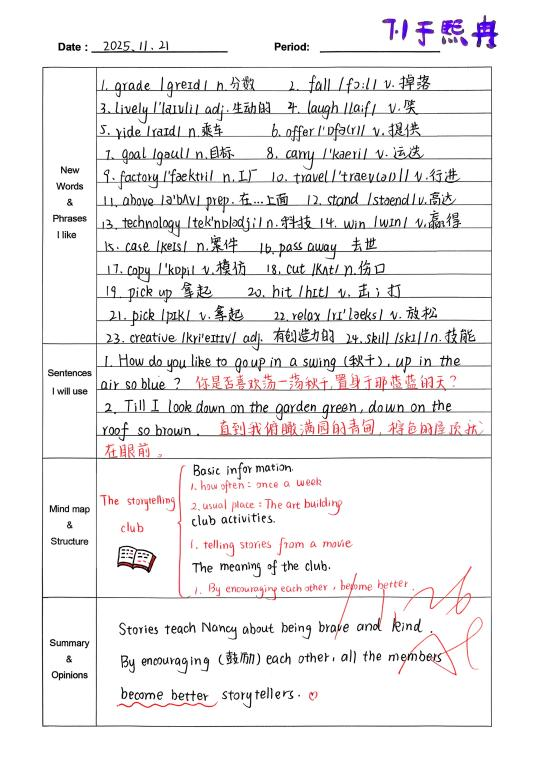 7.1 于熙冉
Date : 2025.11.21 Period:
New
Words
&
Phrases
I like
1. grade /greɪd/ n.分数 2. fall /fɔ:l/ v.掉落
3. lively /'laɪvli/ adj.生动的 4. laugh /laif/ v.笑
5. ride /raɪd/ n.乘车 6. offer /'ɒfə(r)/ v.提供
7. goal /gəul/ n.目标 8. carry /'kæri/ v.运送
9. factory /'fæktri/ n.工厂 10. travel /'træv(ə)l/ v.行进
11. above /ə'bʌv/ prep.在...上面 12. stand /stænd/ v.高达
13. technology /tek'nɒlədʒi/ n.科技 14. win /wɪn/ v.赢得
15. case /keɪs/ n.案件 16. pass away 去世
17. copy /'kɒpɪ/ v.模仿 18. cut /kʌt/ n.伤口
19. pick up 拿起 20. hit /hɪt/ v.击；打
21. pick /pɪk/ v.拿起 22. relax /rɪ'læks/ v.放松
23. creative /kri'eɪtɪv/ adj. 有创造力的 24. skill /skɪl/ n.技能
Sentences
I will use
1. How do you like to go up in a swing (秋千), up in the
air so blue ? 你是否喜欢荡一荡秋千,置身于那蓝蓝的天?
2. Till I look down on the garden green, down on the
roof so brown. 直到我俯瞰满园的青葱，棕色的屋顶就
在眼前。
Mind map
&
Structure
The storytelling
club
Basic information.
1. how often : once a week
2. usual place : The art building
club activities.
1. telling stories from a movie
The meaning of the club.
1. By encouraging each other , become better.
Summary
&
Opinions
Stories teach Nancy about being brave and kind.
By encouraging (鼓励) each other, all the members
become better storytellers.